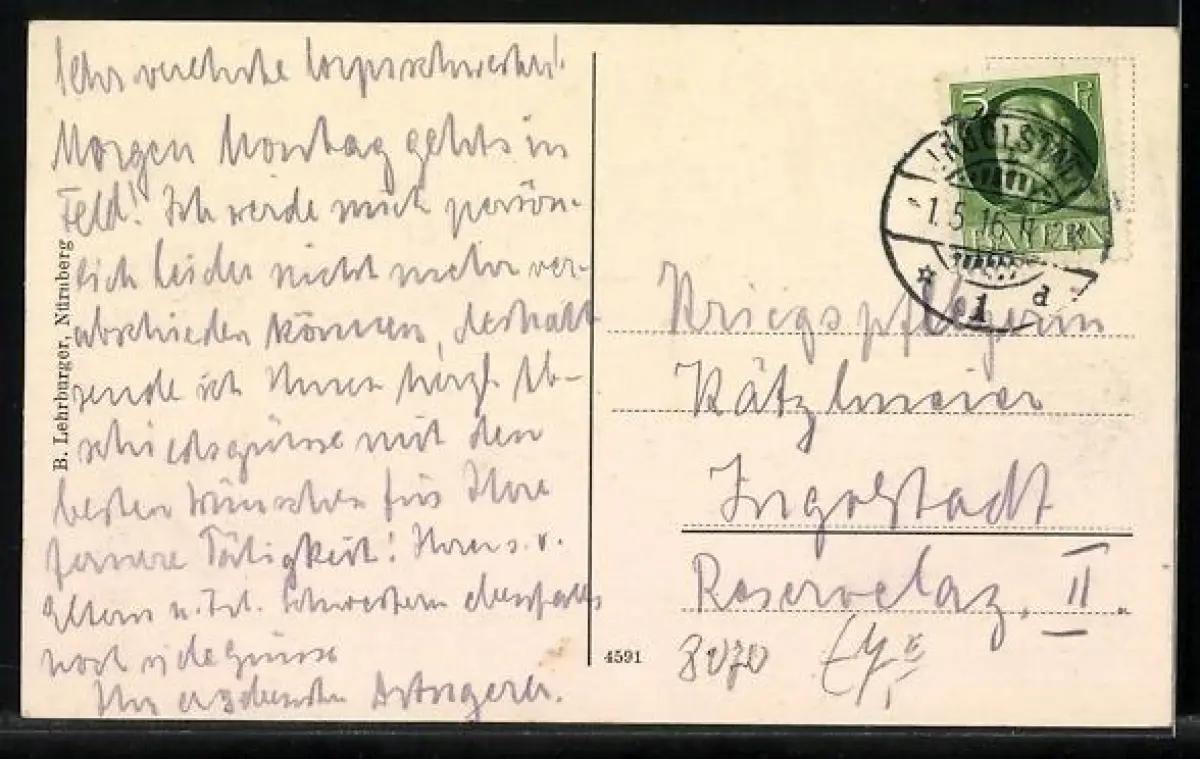 Sehr verehrte Corpsschwester!
Morgen Montag gehts in
Feld! Ich werde mich persön-
lich leider nicht mehr ver-
abschieden können, deshalb
sende ich Ihnen hrzl. Ab-
schiedsgrüsse mit den
besten Wünschen für Ihre
fernere Tätigkeit! Ihren s. v.
Eltern u. Frl. Schwestern ebenfalls
noch viele Grüsse
Ihr ergebenster
B. Lehrburger, Nürnberg
4591
5 Pf
BAYERN
INGOLSTADT
1.5.16
1 d
Kriegspflegerin
Kätzlmeier
Ingolstadt
Reservelaz. II.
8070